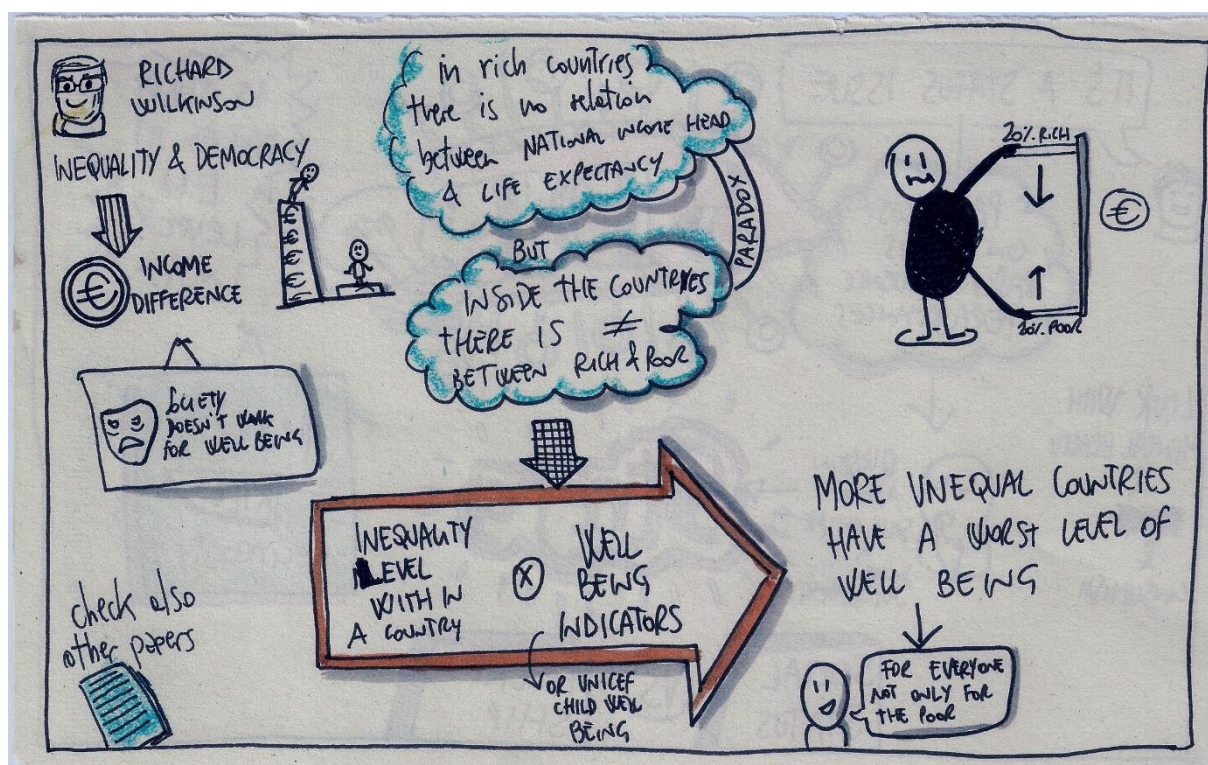 RICHARD
WILKINSON
INEQUALITY & DEMOCRACY
€
INCOME
DIFFERENCE
SOCIETY
DOESN'T WORK
FOR WELL BEING
check also
other papers
in rich countries
there is no relation
between NATIONAL INCOME HEAD
& LIFE EXPECTANCY
BUT
PARADOX
INSIDE THE COUNTRIES
THERE IS ≠
BETWEEN RICH & POOR
INEQUALITY
LEVEL
WITH IN
A COUNTRY
X
WELL
BEING
INDICATORS
OR UNICEF
CHILD WELL
BEING
20% RICH
€
20% POOR
MORE UNEQUAL COUNTRIES
HAVE A WORST LEVEL OF
WELL BEING
FOR EVERYONE
NOT ONLY FOR
THE POOR